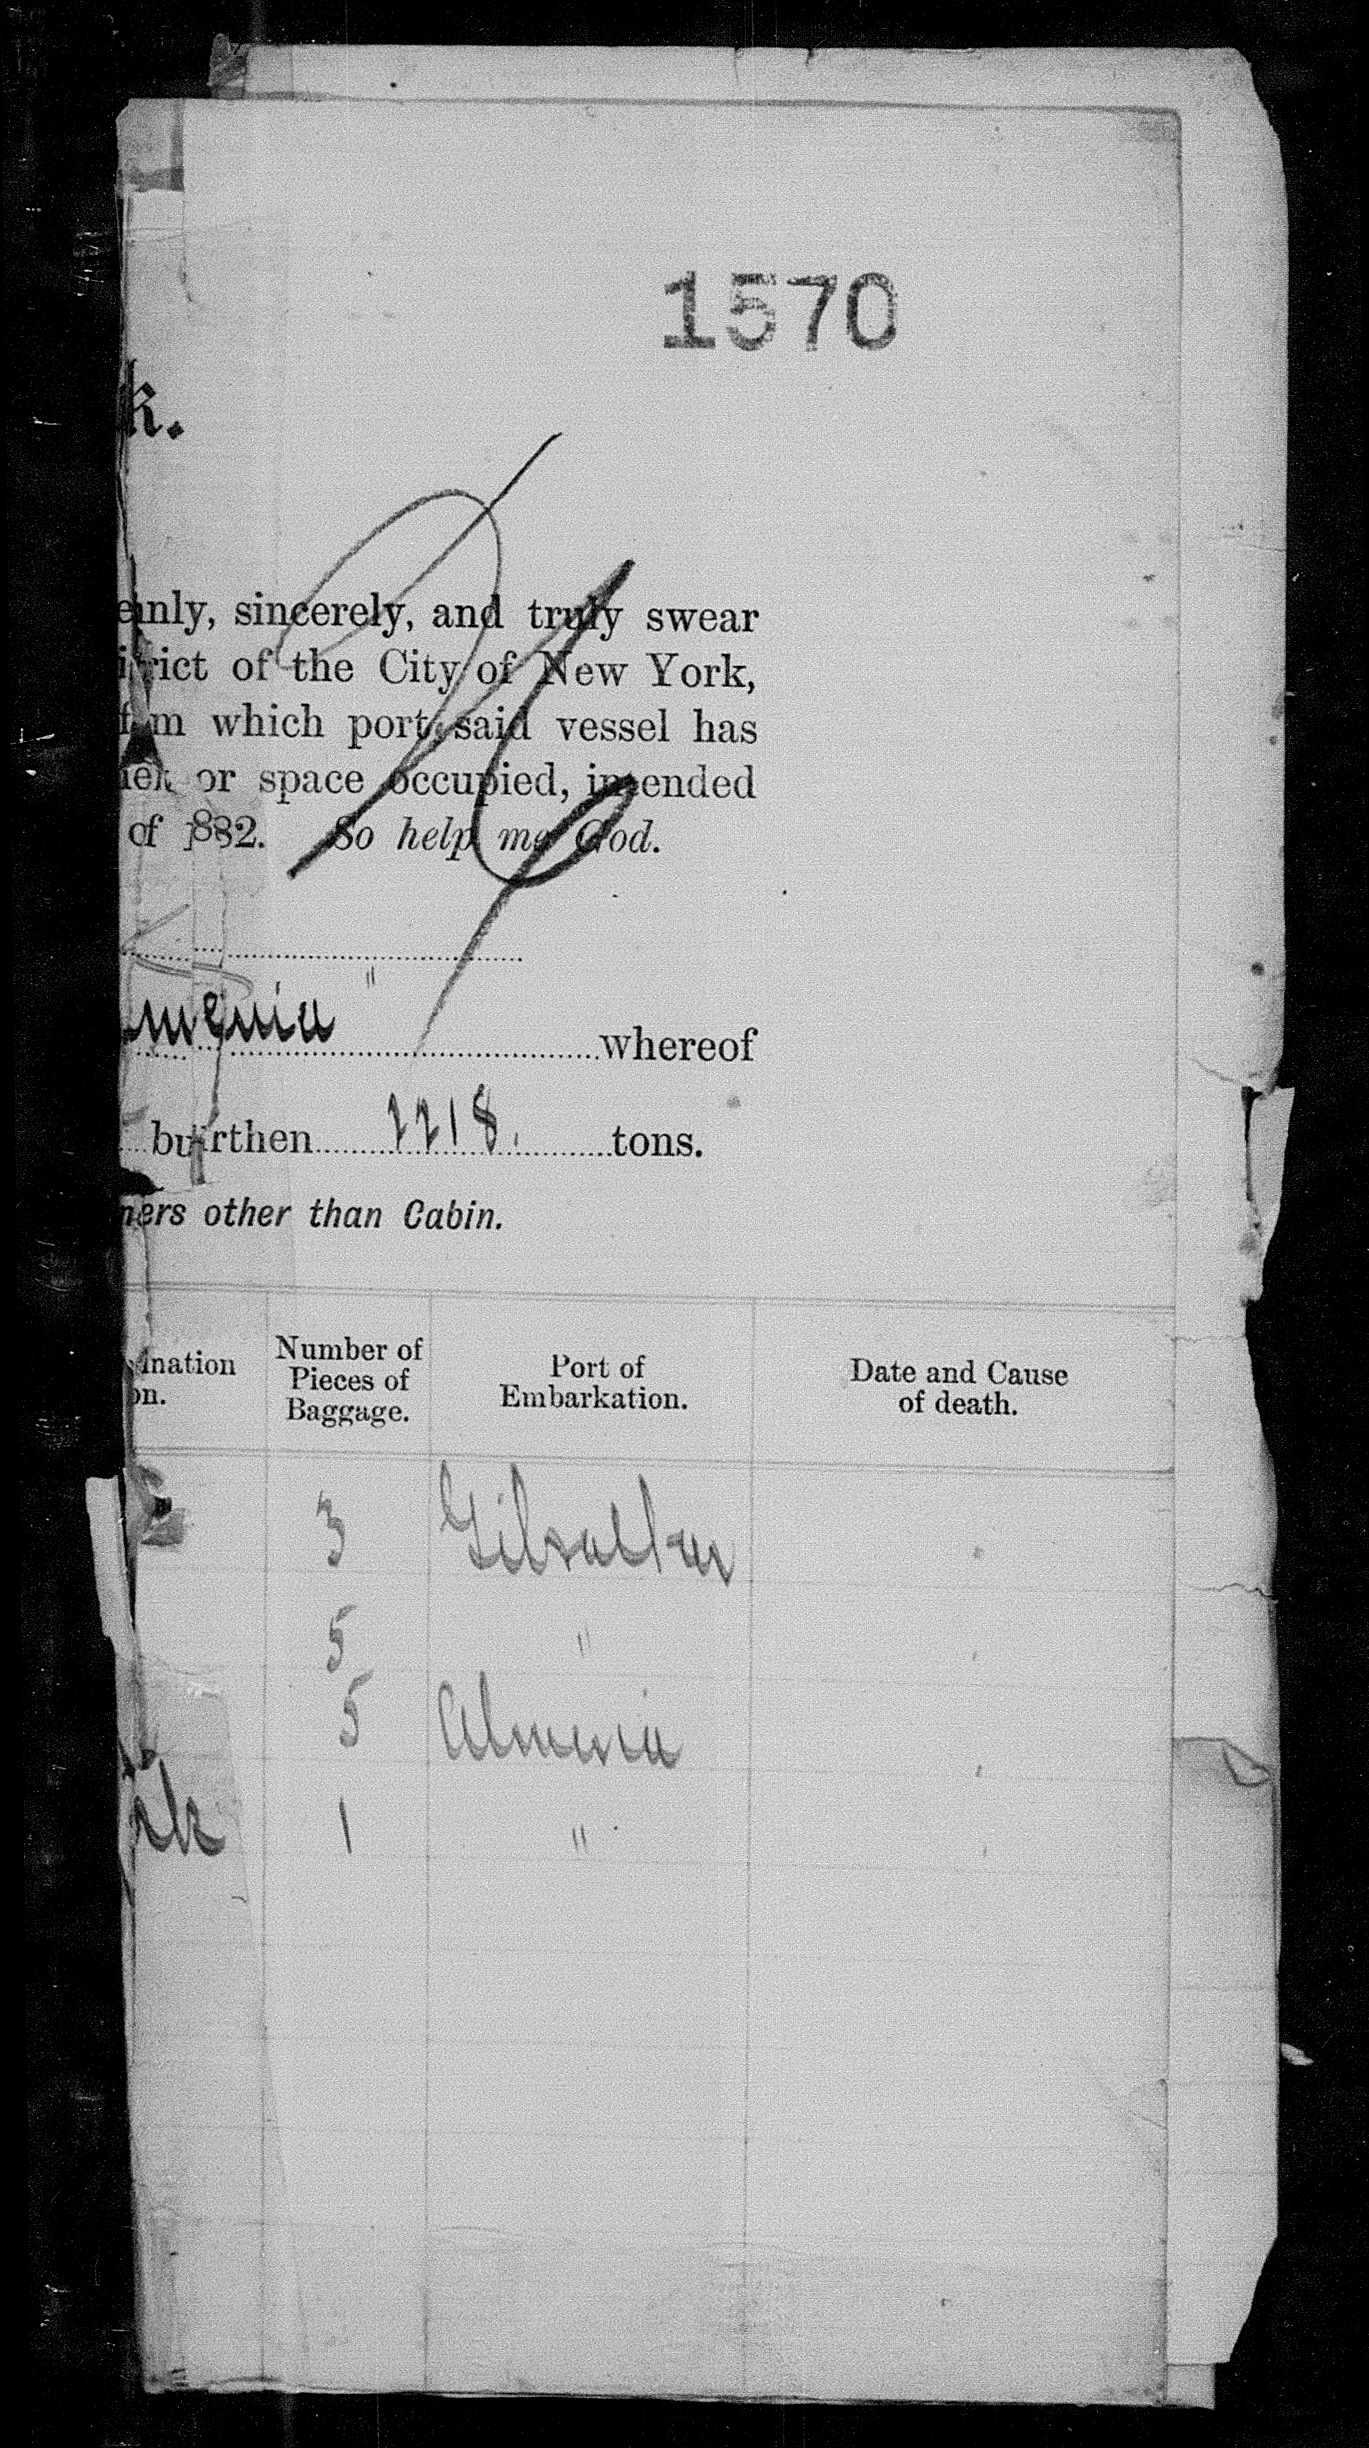 1570
k.
emnly, sincerely, and truly swear
istrict of the City of New York,
from which port, said vessel has
or space occupied, intended
of 1882. So help me God.
"
whereof
burthen 2218. tons.
ngers other than Cabin.
ination
on.
Number of
Pieces of
Baggage.
Port of
Embarkation.
Date and Cause
of death.
3 Gibraltar
5 "
5 Almeria
rk 1 "